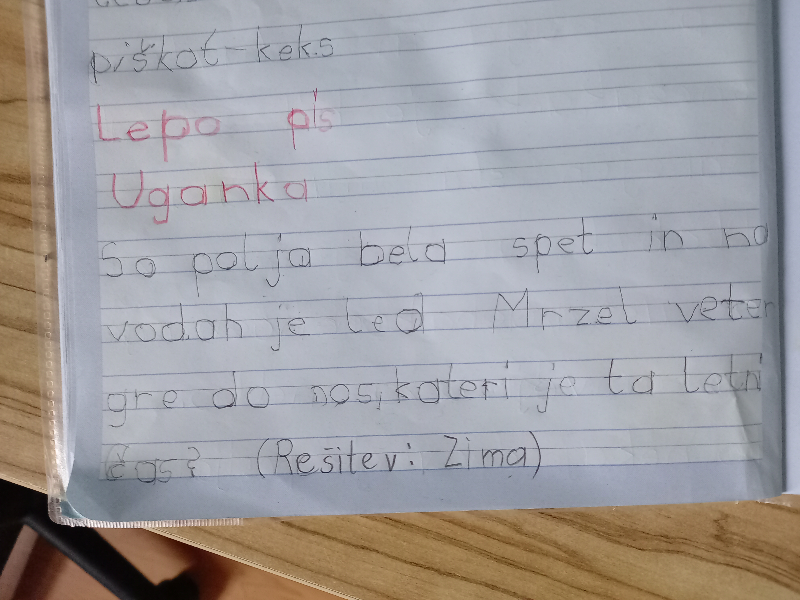 piškot-keks
Lepo pis
Uganka
So polja bela spet in na
vodah je led Mrzel veter
gre do nos, kateri je ta letni
čas? (Rešitev: Zima)